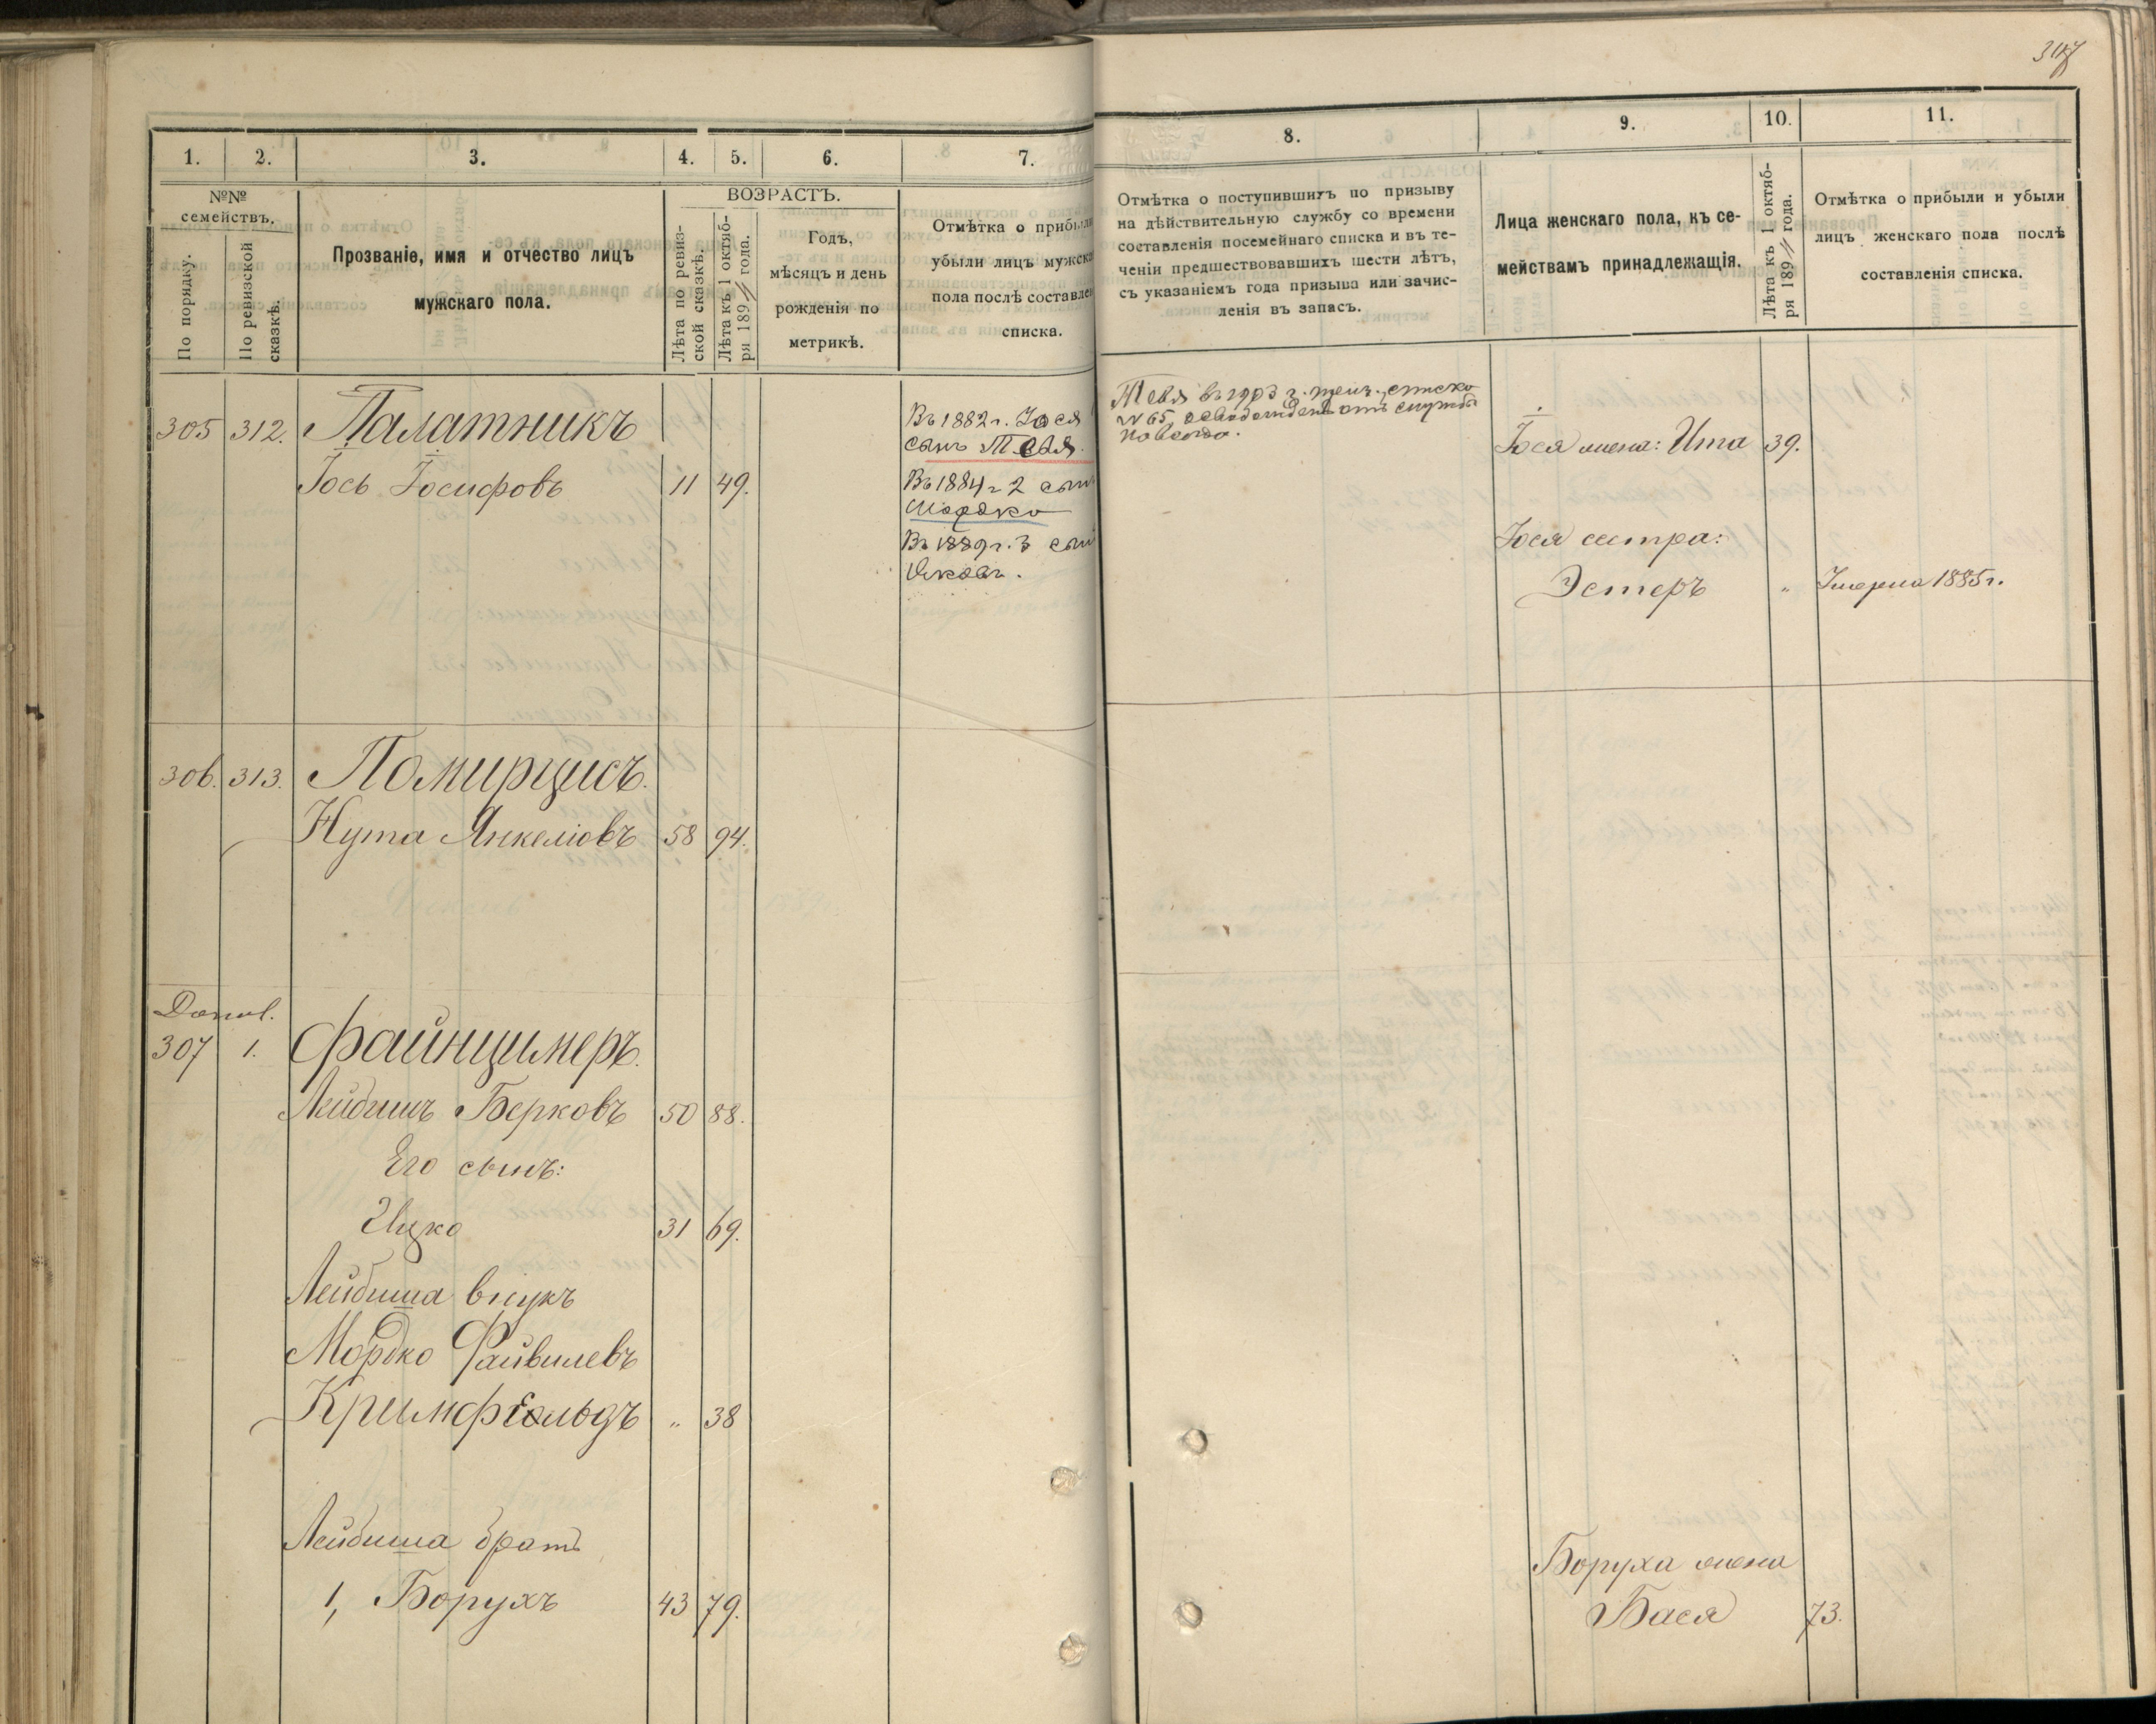 307
1.
2.
3.
4.
5.
6.
7.
№№
семействъ.
По порядку.
По ревизской
сказкѣ.
Прозваніе, имя и отчество лицъ
мужскаго пола.
ВОЗРАСТЪ.
Лѣта по ревиз-
ской сказкѣ.
Лѣта къ 1 октяб-
ря 189 года.
Годъ,
мѣсяцъ и день
рожденія по
метрикѣ.
Отмѣтка о прибыли
убыли лицъ мужска
пола послѣ составлен
списка.
305
312.
Палатникъ
Іось Іосифовъ
11
49.
Въ 1882 г. Іося
сынъ Тевя.
Въ 1884 г 2 сын
Мордко
Въ 1889 г. 3 сын
306.
313.
Помирцисъ.
Нута Янкелiовъ
58
94.
307
1.
Файнцимеръ.
Лейбишъ Берковъ
50
88.
Его сынъ:
Ицко
31
69.
Лейбиша внукъ
Мордко Файвилевъ
"
38
Лейбиша братъ
1, Борухъ
43
79.
8.
9.
10.
11.
Отмѣтка о поступившихъ по призыву
на дѣйствительную службу со времени
составленія посемейнаго списка и въ те-
ченіи предшествовавшихъ шести лѣтъ,
съ указаніемъ года призыва или зачис-
ленія въ запасъ.
Лица женскаго пола, къ се-
мействамъ принадлежащія.
Лѣта къ 1 октяб-
ря 189 года.
Отмѣтка о прибыли и убыли
лицъ женскаго пола послѣ
составленія списка.
Тевя въ 1903 г.
№ 65 освобожденъ отъ службы
навсегда.
Іося жена: Ита
39.
Іося сестра:
Эстеръ
"
Умерла 1885 г.
Боруха жена
Бася
73.